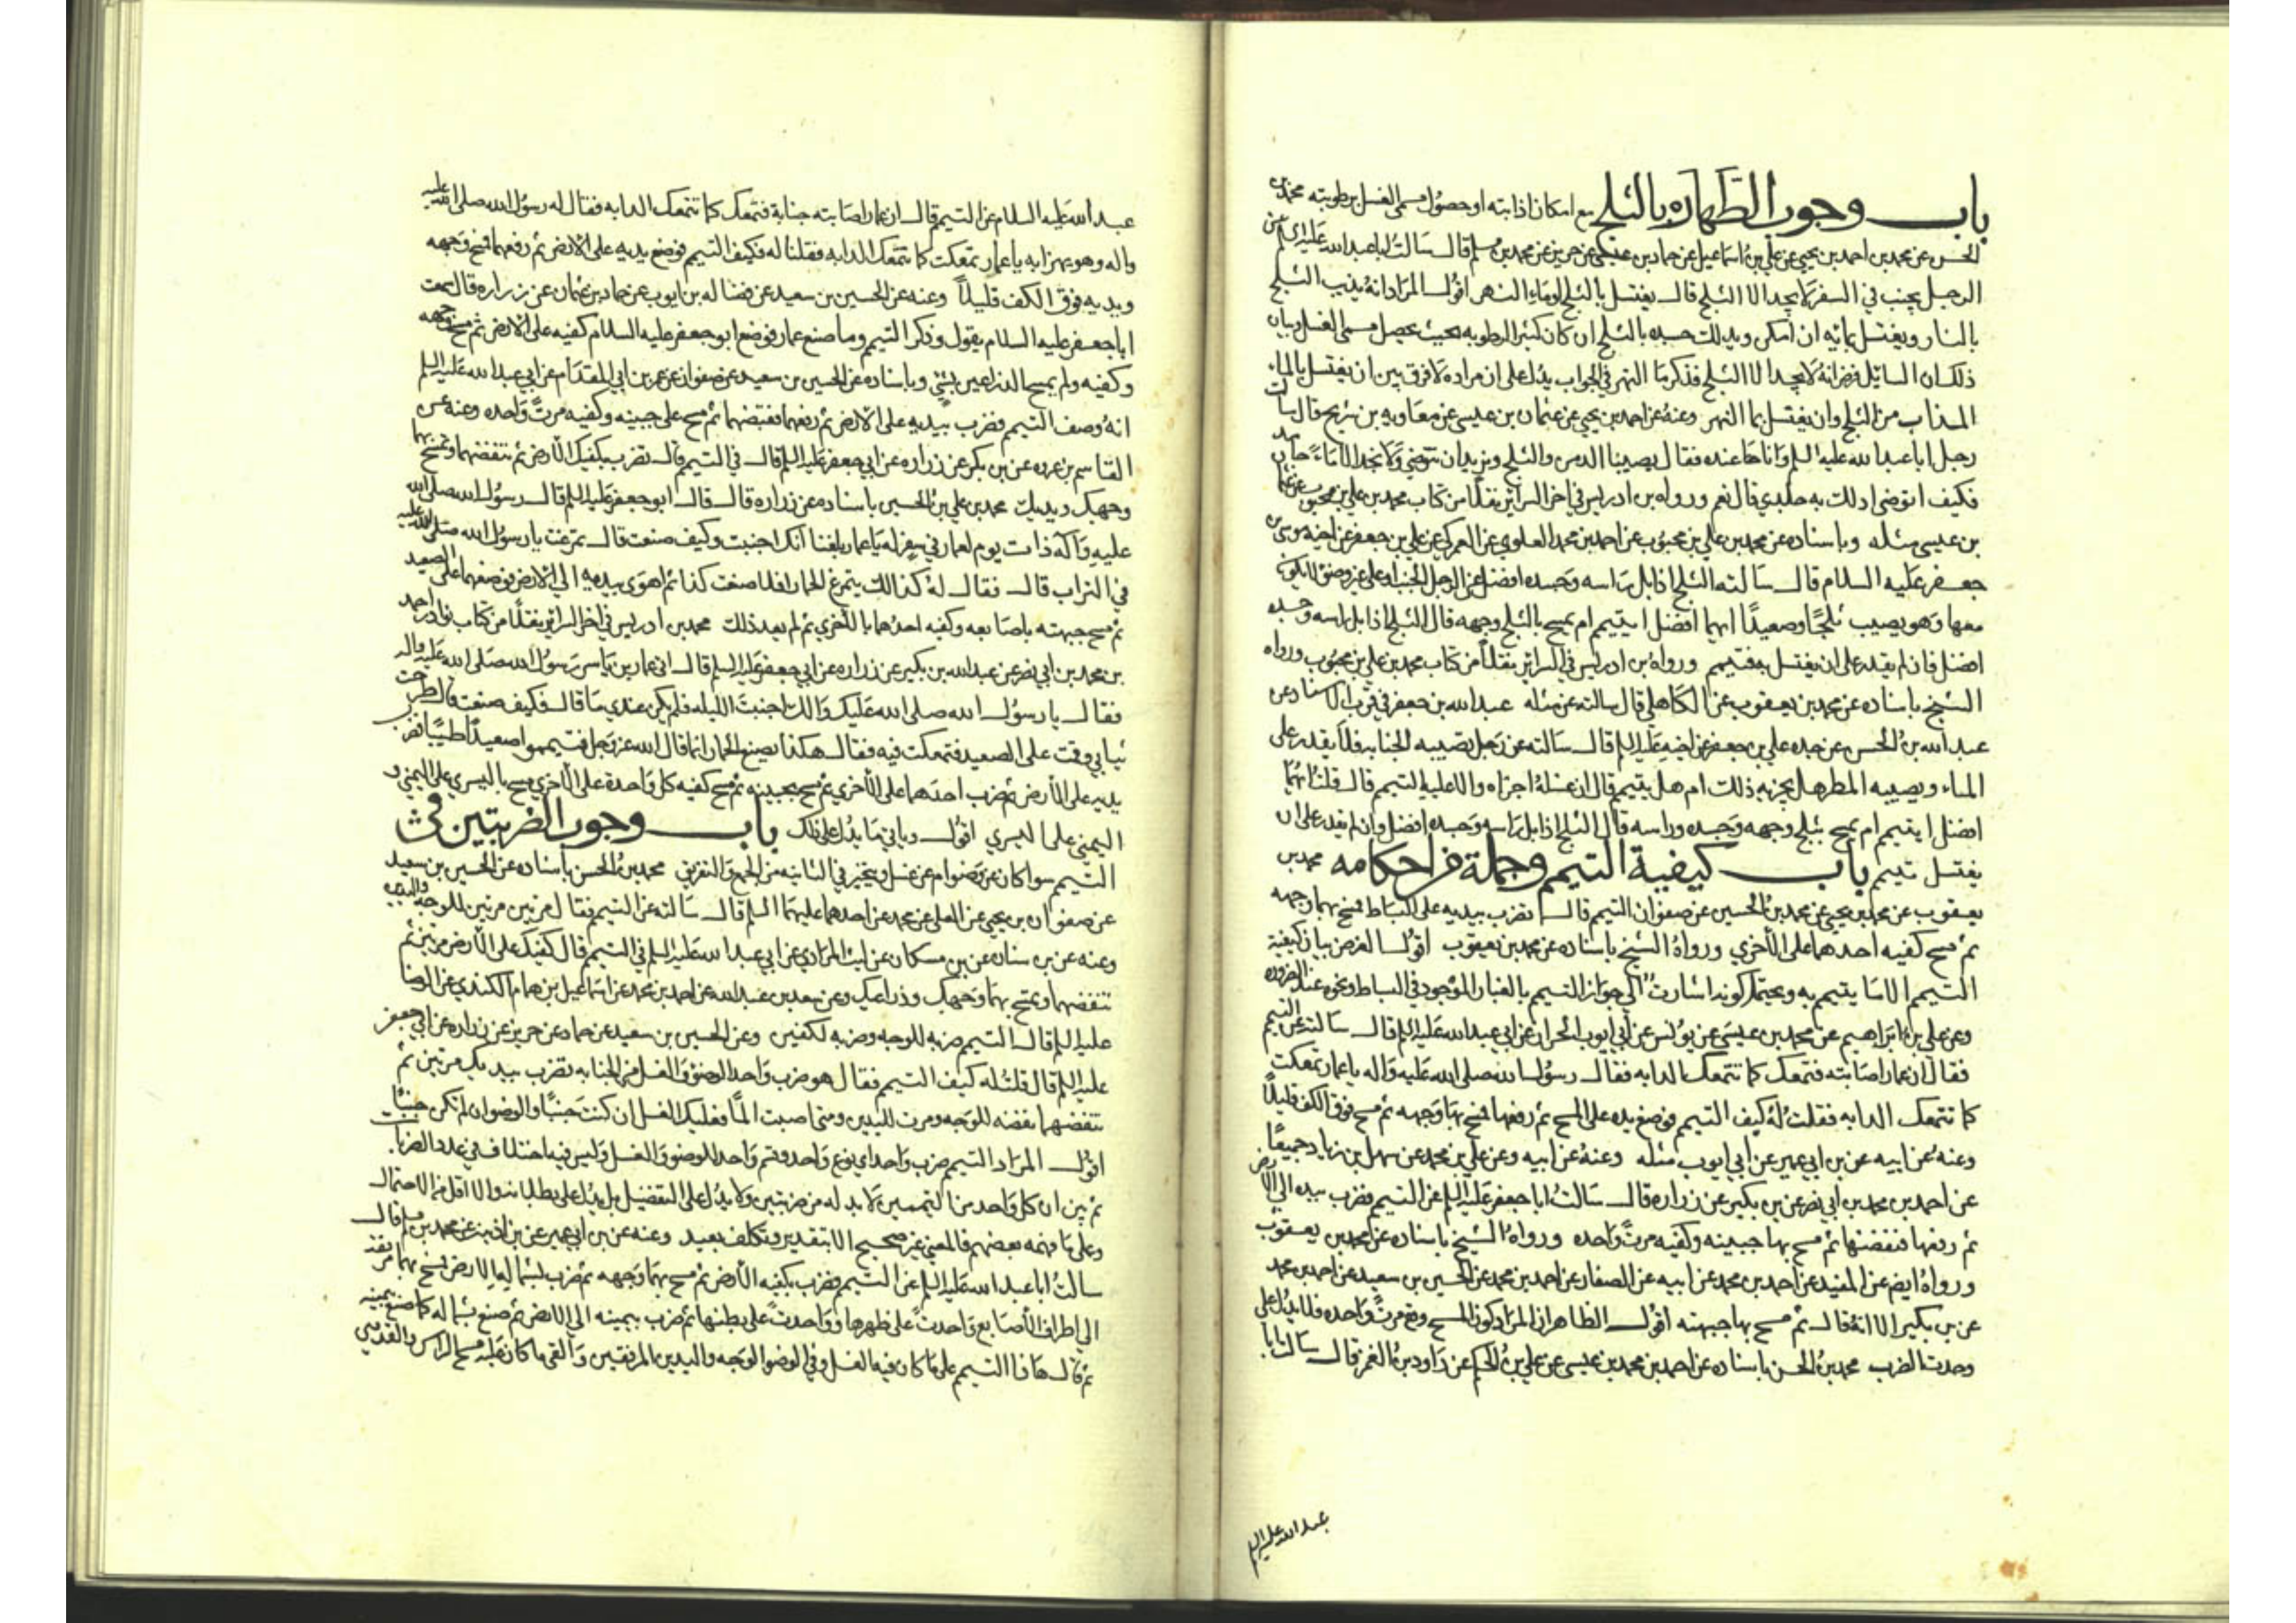 باب وجوب الطهاره بالثلج مع امكان اذابته او حصول مسمى الغسل برطوبته محمد بن
الحسن عن محمد بن احمد بن يحيى عن علي بن اسماعيل عن حماد بن عيسى عن حريز عن محمد بن مسلم قال سالت ابا عبد الله عليه السلم عن
الرجل يجنب في السفر لا يجد الا الثلج قال يغتسل بالثلج او ماء النهر اقول المراد انه يذيب الثلج
بالنار ويغتسل بمائه ان امكن ويدلك جسده بالثلج ان كان كثير الرطوبه بحيث يحصل مسمى الغسل وبيان
ذلك ان السائل فرض انه لا يجد الا الثلج فذكر ماء النهر في الجواب يدل على ان مراده لا فرق بين ان يغتسل بالماء
المذاب من الثلج وان يغتسل بماء النهر وعنه عن احمد بن يحيى عن عثمان بن عيسى عن معاويه بن شريح قال سأل
رجل ابا عبد الله عليه السلم وانا حاضر عنده فقال يصيبنا الدمق والثلج ونريد ان نتوضى ولا نجد الا ماء جامد
فكيف اتوضى ادلك به جلدي قال نعم ورواه بن ادريس في اخر السرائر نقلا من كتاب محمد بن علي بن محبوب عن عثمان
بن عيسى مثله وباسناده عن محمد بن علي بن محبوب عن احمد بن محمد العلوي عن العمركي عن علي بن جعفر عن اخيه موسى بن
جعفر عليه السلام قال سالته عن الرجل الجنب او على غير وضوء لا يكون
معها وهو يصيب ثلجا وصعيدا ايهما افضل ايتيمم ام يمسح بالثلج وجهه قال الثلج اذا بل راسه وجسده
افضل فان لم يقدر على ان يغتسل به فتيمم ورواه بن ادريس في السرائر نقلا من كتاب محمد بن علي بن محبوب ورواه
الشيخ باسناده عن محمد بن يعقوب عن الكاهلي قال سالته عن مثله عبد الله بن جعفر في قرب الاسناد عن
عبد الله بن الحسن عن جده علي بن جعفر عن اخيه عليه السلم قال سالته عن رجل تصيبه الجنابه فلا يقدر على
الماء ويصيبه المطر هل يجزيه ذلك ام هل يتيمم قال ان غسله اجزاه والا عليه التيمم قال قلت ايهما
افضل ايتيمم ام يمسح بثلج وجهه وجسده وراسه قال الثلج اذا بل راسه وجسده افضل وان لم يقدر على ان
يغتسل تيمم باب كيفية التيمم وجملة من احكامه محمد بن
يعقوب عن محمد بن يحيى عن محمد بن الحسين عن صفوان التيمم قال تضرب بيديه على البساط فمسح بهما وجهه
ثم مسح كفيه احدهما على الأخري ورواه الشيخ باسناده عن محمد بن يعقوب اقول الغرض بيان كيفية
التيمم الا ما يتيمم به ويحتمل كونه اشارت الي جواز التيمم بالغبار الموجود في البساط ونحوه عند الضروره
وعن علي بن ابراهيم عن محمد بن عيسى عن يونس عن ابي ايوب الخزاز عن ابي عبد الله عليه السلم قال سالته عن التيمم
فقال ان عمارا صابته فتمعك كما تتمعك الدابه فقال رسول الله صلى الله عليه واله يا عمار تمعكت
كما تتمعك الدابه فقلت له كيف التيمم فوضع يده على المسح ثم رفعها فمسح بها وجهه ثم مسح فوق الكف قليلا
وعنه عن ابيه عن بن ابي عمير عن ابي ايوب مثله وعنه عن ابيه وعن علي بن محمد عن سهل بن زياد جميعا
عن احمد بن محمد بن ابي نصر عن بن بكير عن زراره قال سالت ابا جعفر عليه السلم عن التيمم فضرب بيده الي الارض
ثم رفعها فنفضها ثم مسح بها جبينه وكفيه مرت واحده ورواه الشيخ باسناده عن محمد بن يعقوب
ورواه ايض عن المفيد عن احمد بن محمد عن ابيه عن الصفار عن احمد بن محمد عن الحسين بن سعيد عن احمد بن محمد
عن بن بكير الا انه قال ثم مسح بها جبهته اقول الظاهر ان المراد كون المسح وقع مرت واحده فلا يدل على
وحدت الضرب محمد بن الحسن باسناده عن احمد بن محمد بن عيسى عن علي بن الحكم عن داود بن النعمن قال سالت ابا
عبد الله عليه السلم
عبد الله عليه السلام عن التيمم قال ان عمارا صابته جنابة فتمعك كما تتمعك الدابه فقال له رسول الله صلى الله عليه
واله وهو يهزا به يا عمار تمعكت كما تتمعك الدابه فقلنا له فكيف التيمم فوضع يديه على الارض ثم رفعهما فمسح وجهه
ويديه فوق الكف قليلا وعنه عن الحسين بن سعيد عن فضاله بن ايوب عن حماد بن عثمان عن زراره قال سمعت
ابا جعفر عليه السلام يقول وذكر التيمم وما صنع عمار فوضع ابو جعفر عليه السلام كفيه على الارض ثم مسح وجهه
وكفيه ولم يمسح الذراعين بشئ وباسناده عن الحسين بن سعيد عن صفوان عن عمر بن ابي المقدام عن ابي عبد الله عليه السلم
انه وصف التيمم فضرب بيديه على الارض ثم رفعهما فنفضهما ثم مسح على جبينه وكفيه مرت واحده وعنه عن
القاسم بن عروه عن بن بكير عن زراره عن ابي جعفر عليه السلم قال في التيمم قال تضرب بكفيك الأرض ثم تنفضهما وتمسح بهما
وجهك ويديك محمد بن علي بن الحسين باسناده عن زراره قال قال ابو جعفر عليه السلم قال رسول الله صلى الله
عليه وآله ذات يوم لعمار في سفر له يا عمار بلغنا أنك اجنبت وكيف صنعت قال تمرغت يا رسول الله صلى الله عليه
في التراب قال فقال له كذالك يتمرغ الحمار افلا صنعت كذا ثم اهوى بيديه الي الارض فوضعهما على الصعيد
ثم مسح جبهته باصابعه وكفيه احدهما بالأخري ثم لم يعد ذلك محمد بن ادريس في اخر السرائر نقلا من كتاب نوادر احمد
بن محمد بن ابي نصر عن عبد الله بن بكير عن زراره عن ابي جعفر عليه السلم قال اتى عمار بن ياسر رسول الله صلى الله عليه واله
فقال يا رسول الله صلى الله عليك والك اجنبت الليله فلم يكن عندي ما قال فكيف صنعت قال طرحت
ثيابي وقمت على الصعيد فتمعكت فيه فقال هكذا يصنع الحمار انما قال الله عز وجل فتيمموا صعيدا طيبا فضرب
يديه على الأرض ثم ضرب احدهما على الأخري ثم مسح بجبينه ثم مسح كفيه كل واحدة على الأخري مسح باليسري على اليمني و
اليمني على اليسري اقول وياتي ما يدل على ذلك باب وجوب الضربتين في
التيمم سوا كان عن وضوء ام عن غسل ويتخير في الثانيه بين الجمع والتفريق محمد بن الحسن باسناده عن الحسين بن سعيد
عن صفوان بن يحيى عن العلا عن محمد عن احدهما عليهما السلم قال سالته عن التيمم فقال مرتين مرتين للوجه واليدين
وعنه عن بن سنان عن بن مسكان عن ليث المرادي عن ابي عبد الله عليه السلم في التيمم قال كفيك على الأرض مرتين ثم
تنفضهما وتمسح بهما وجهك وذراعيك وعن سعد بن عبد الله عن احمد بن محمد عن اسماعيل بن همام الكندي عن الرضا
عليه السلم قال التيمم ضربه للوجه وضربه للكفين وعن الحسين بن سعيد عن حماد عن حريز عن زراره عن ابي جعفر
عليه السلم قال قلت له كيف التيمم فقال هو ضرب واحد للوضوء والغسل من الجنابه تضرب بيديك مرتين ثم
تنفضهما نفضه للوجه ومرت لليدين ومتى اصبت الما فعليك الغسل ان كنت جنبا والوضوء ان لم تكن جنبا
اقول المراد التيمم ضرب واحد اي نوع واحد وقسم واحد للوضوء والغسل وليس فيه اختلاف في عدد الضربات
ثم بين ان كل واحد من التيممين لا بد له من ضربتين ولا يدل على التفضيل بل يدل على بطلانه ولا اقل من الاحتمال
وعلى ما فهمه بعضهم فالمعني غير صحيح الا بتقدير وتكلف بعيد وعنه عن بن ابي عمير عن بن اذينه عن محمد بن مسلم قال
سالت ابا عبد الله عليه السلم عن التيمم فضرب بكفيه الأرض ثم مسح بهما وجهه ثم ضرب بشماله الارض فمسح بها مرفقه
الي اطراف الأصابع واحدت على ظهرها وواحدت على بطنها ثم ضرب بيمينه الي الارض ثم صنع بشماله كما صنع بيمينه
ثم قال هاذا التيمم على ما كان فيه الغسل وفي الوضوء الوجه واليدين الي المرفقين وألقي ما كان عليه مسح الراس والقدمين